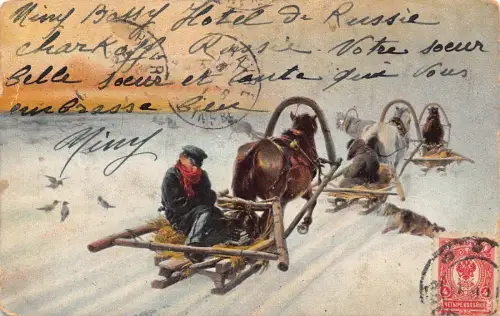 Mimy Bassy Hotel de Russie
charkoff Russie. Votre soeur
belle soeur et tante qui vous
embrasse bien
Mimy
4 4
ЧЕТЫРЕ КОПѢЙКИ